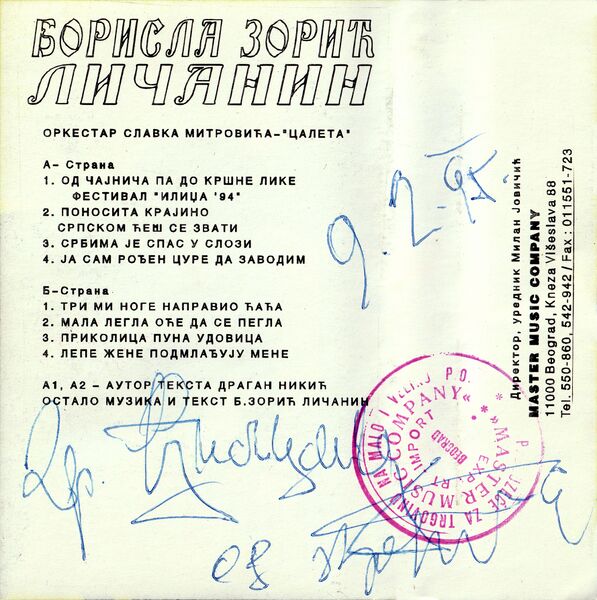 БОРИСЛА ЗОРИЋ
ЛИЧАНИН
ОРКЕСТАР СЛАВКА МИТРОВИЋА-"ЦАЛЕТА"
А- Страна
1. ОД ЧАЈНИЧА ПА ДО КРШНЕ ЛИКЕ
ФЕСТИВАЛ "ИЛИЏА '94"
2. ПОНОСИТА КРАЈИНО
СРПСКОМ ЋЕШ СЕ ЗВАТИ
3. СРБИМА ЈЕ СПАС У СЛОЗИ
4. ЈА САМ РОЂЕН ЦУРЕ ДА ЗАВОДИМ
Б-Страна
1. ТРИ МИ НОГЕ НАПРАВИО ЋАЋА
2. МАЛА ЛЕГЛА ОЋЕ ДА СЕ ПЕГЛА
3. ПРИКОЛИЦА ПУНА УДОВИЦА
4. ЛЕПЕ ЖЕНЕ ПОДМЛАЂУЈУ МЕНЕ
А1, А2 - АУТОР ТЕКСТА ДРАГАН НИКИЋ
ОСТАЛО МУЗИКА И ТЕКСТ Б.ЗОРИЋ ЛИЧАНИН
Директор, уредник Милан Јовичић
MASTER MUSIC COMPANY
11000 Beograd, Kneza Višeslava 88
Tel. 550-860, 542-942 / Fax : 011551-723
ZA TRGOVINU NA MALO I VELIKO P.O.
"MASTER MUSIC COMPANY"
EXPORT IMPORT
BEOGRAD